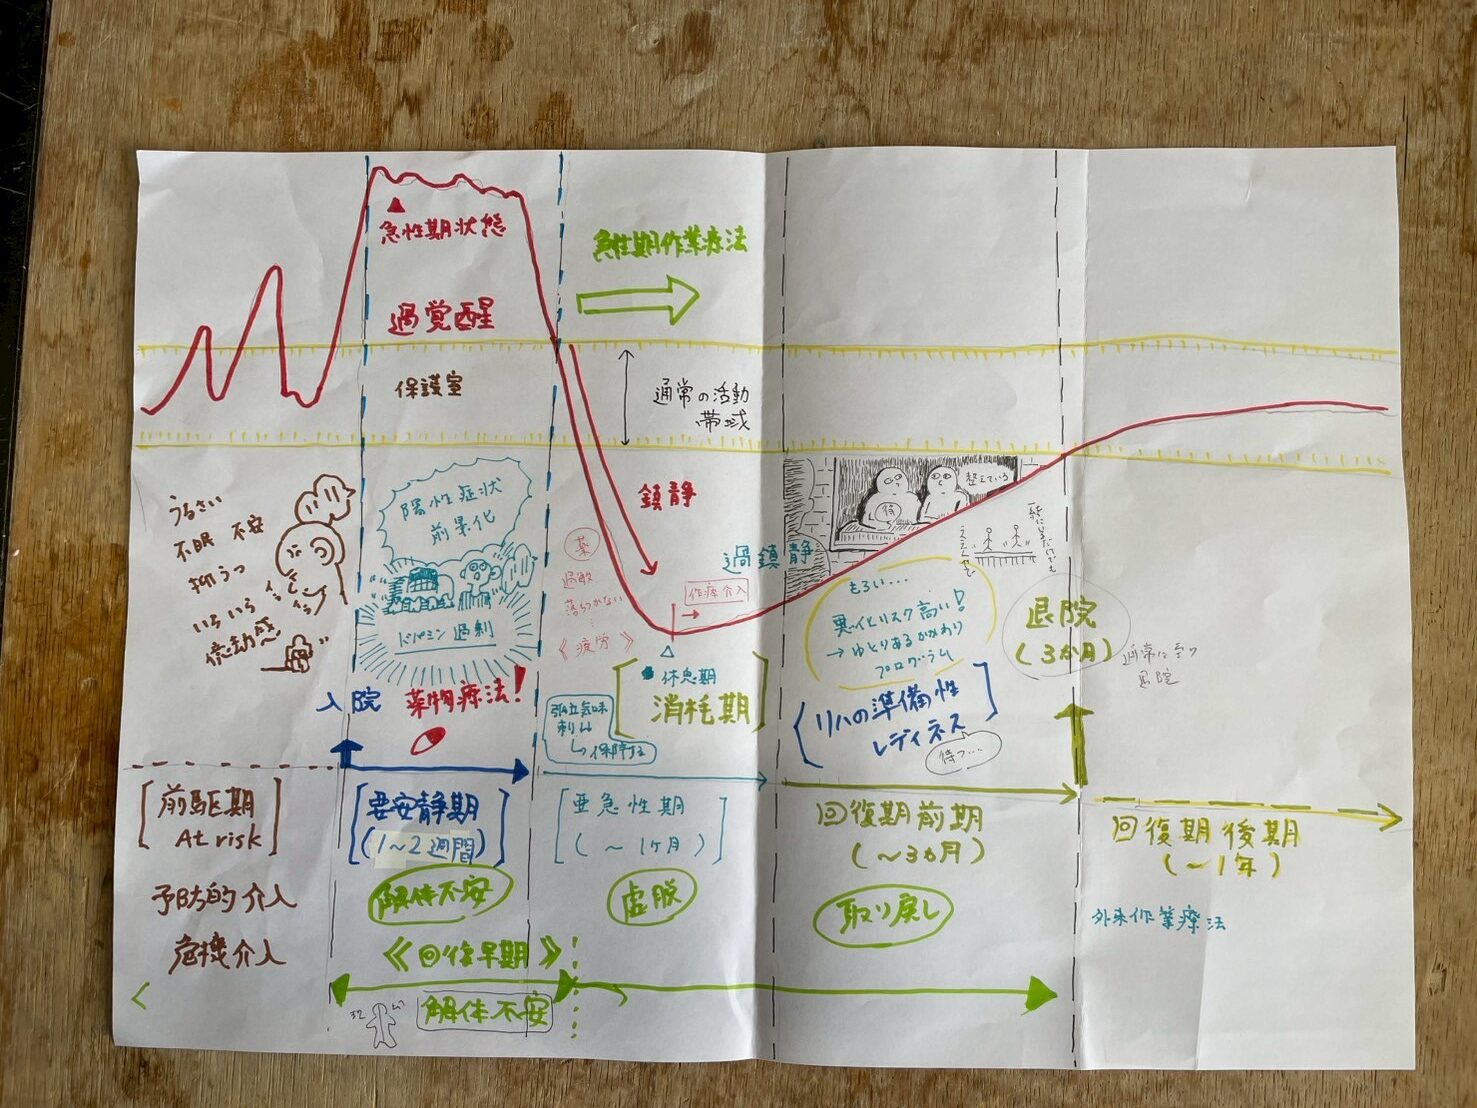 急性期状態
過覚醒
保護室
急性期作業療法
通常の活動
帯域
うるさい
不眠 不安
抑うつ
いらいら
倦怠感
陽性症状
前景化
ドパミン過剰
入院 薬物療法!
鎮静
薬
過敏
落ちつかない
…
《疲労》
作療介入
過鎮静
休息期
[消耗期]
孤立気味
刺激
→保障する
待
整えている
もろい…
悪化リスク高い!
→ゆとりあるかかわり
プログラム
[リハの準備性
レディネス]
待つ…
退院
(3ヵ月)
通常に至り
退院
[前駆期
At risk]
予防的介入
危機介入
[要安静期]
(1~2週間)
解体不安
《回復早期》
解体不安
[亜急性期
(~1ヶ月)]
虚脱
回復期前期
(~3ヵ月)
取り戻し
回復期後期
(~1年)
外来作業療法